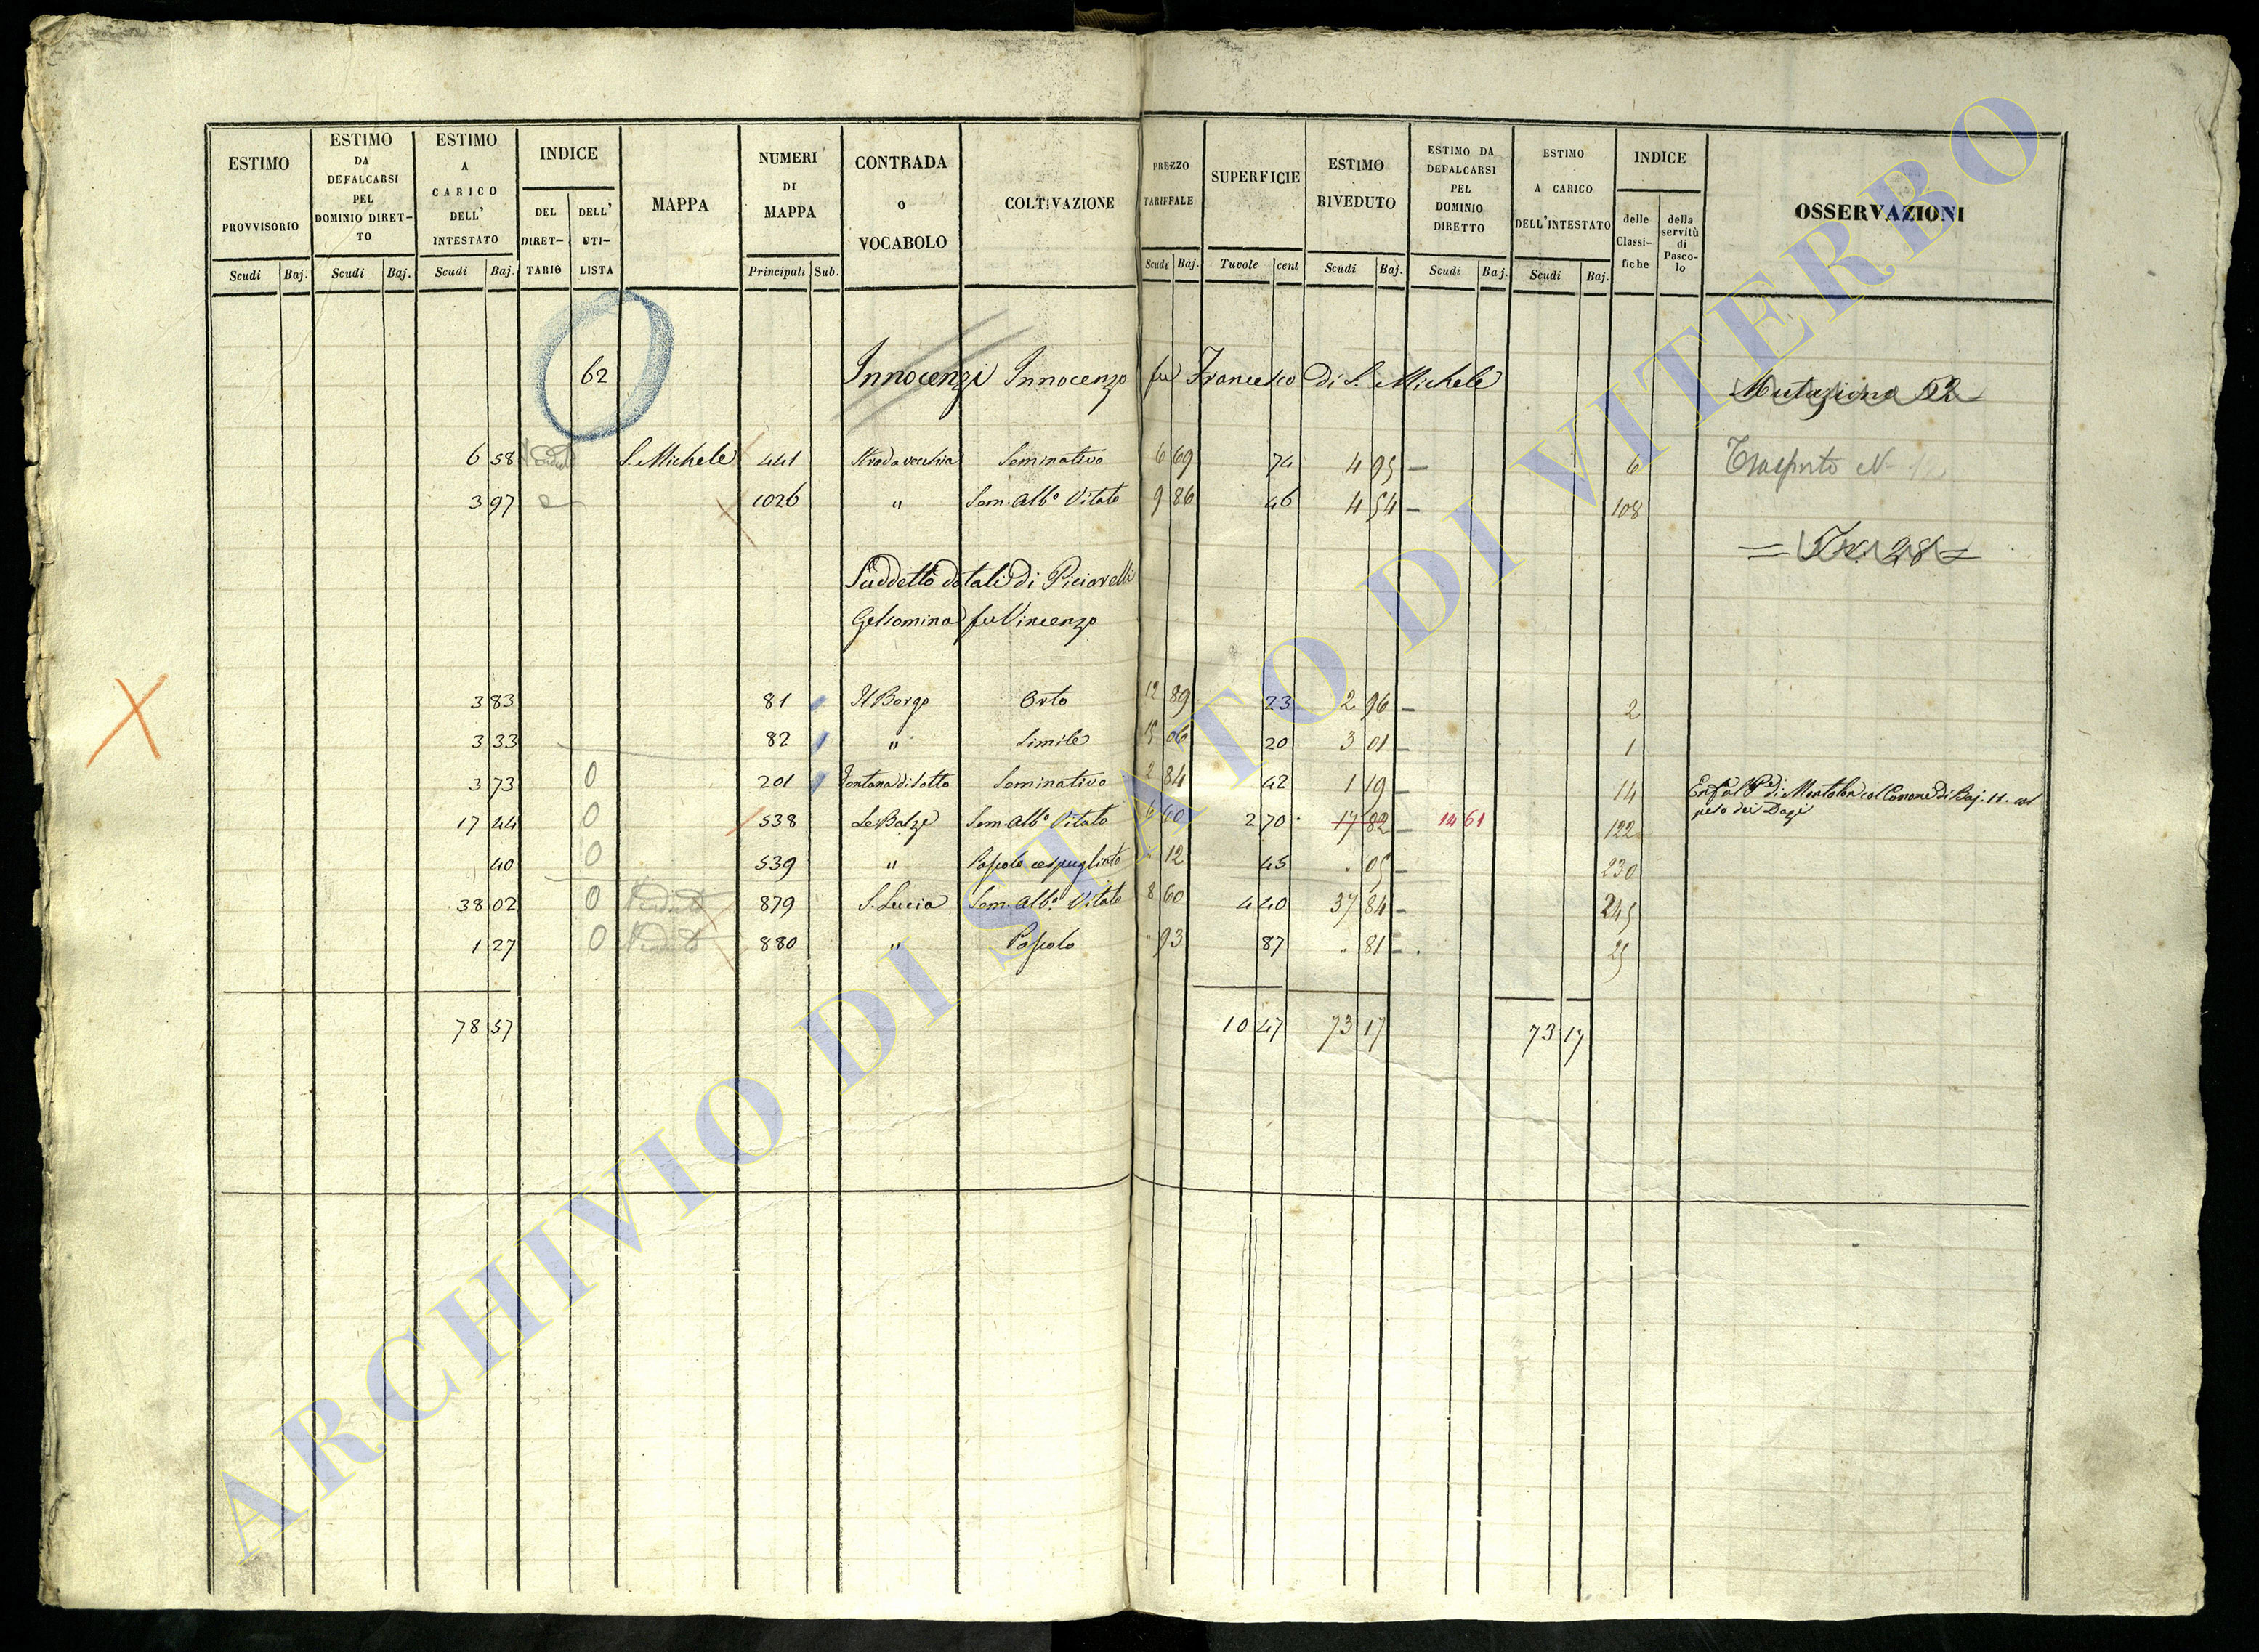 ESTIMO PROVVISORIO Scudi Baj.
ESTIMO DA DEFALCARSI PEL DOMINIO DIRET- TO Scudi Baj.
ESTIMO A CARICO DELL' INTESTATO Scudi Baj.
INDICE DEL DIRET- TARIO DELL' UTI- LISTA
MAPPA
NUMERI DI MAPPA Principali Sub.
CONTRADA O VOCABOLO
COLTIVAZIONE
PREZZO TARIFFALE Scudi Baj.
SUPERFICIE Tavole cent
ESTIMO RIVEDUTO Scudi Baj.
ESTIMO DA DEFALCARSI PEL DOMINIO DIRETTO Scudi Baj.
ESTIMO A CARICO DELL'INTESTATO Scudi Baj.
INDICE delle Classi- fiche della servitù di Pasco- lo
OSSERVAZIONI
62 Innocenzi Innocenzo fu Francesco di S. Michele Mutazione 52
6 58 S. Michele 441 Strada vecchia Seminativo 6 69 74 4 95 6 Trasporto N.
3 97 1026 " Sem. Alb.º Vitato 9 86 46 4 54 108
= Tr. 28 =
Suddetto dotali di Piciarelli
Gelsomina fu Vincenzo
3 83 81 Il Borgo Orto 12 89 23 2 96 2
3 33 82 " Simile 15 06 20 3 01 1
3 73 0 201 Fontana di Sotto Seminativo 2 84 42 1 19 14
17 44 0 538 Le Balze Sem. Alb.º Vitato 6 60 2 70 17 82 14 61 122 peso dei Dazi
40 0 539 " Pascolo cespugliato " 12 45 . 05 230
38 02 0 Venduto 879 S. Lucia Sem. Alb.º Vitato 8 60 4 40 37 84 245
1 27 0 Venduto 880 " Pascolo " 93 87 . 81 25
78 57 10 47 73 17 73 17
ARCHIVIO DI STATO DI VITERBO